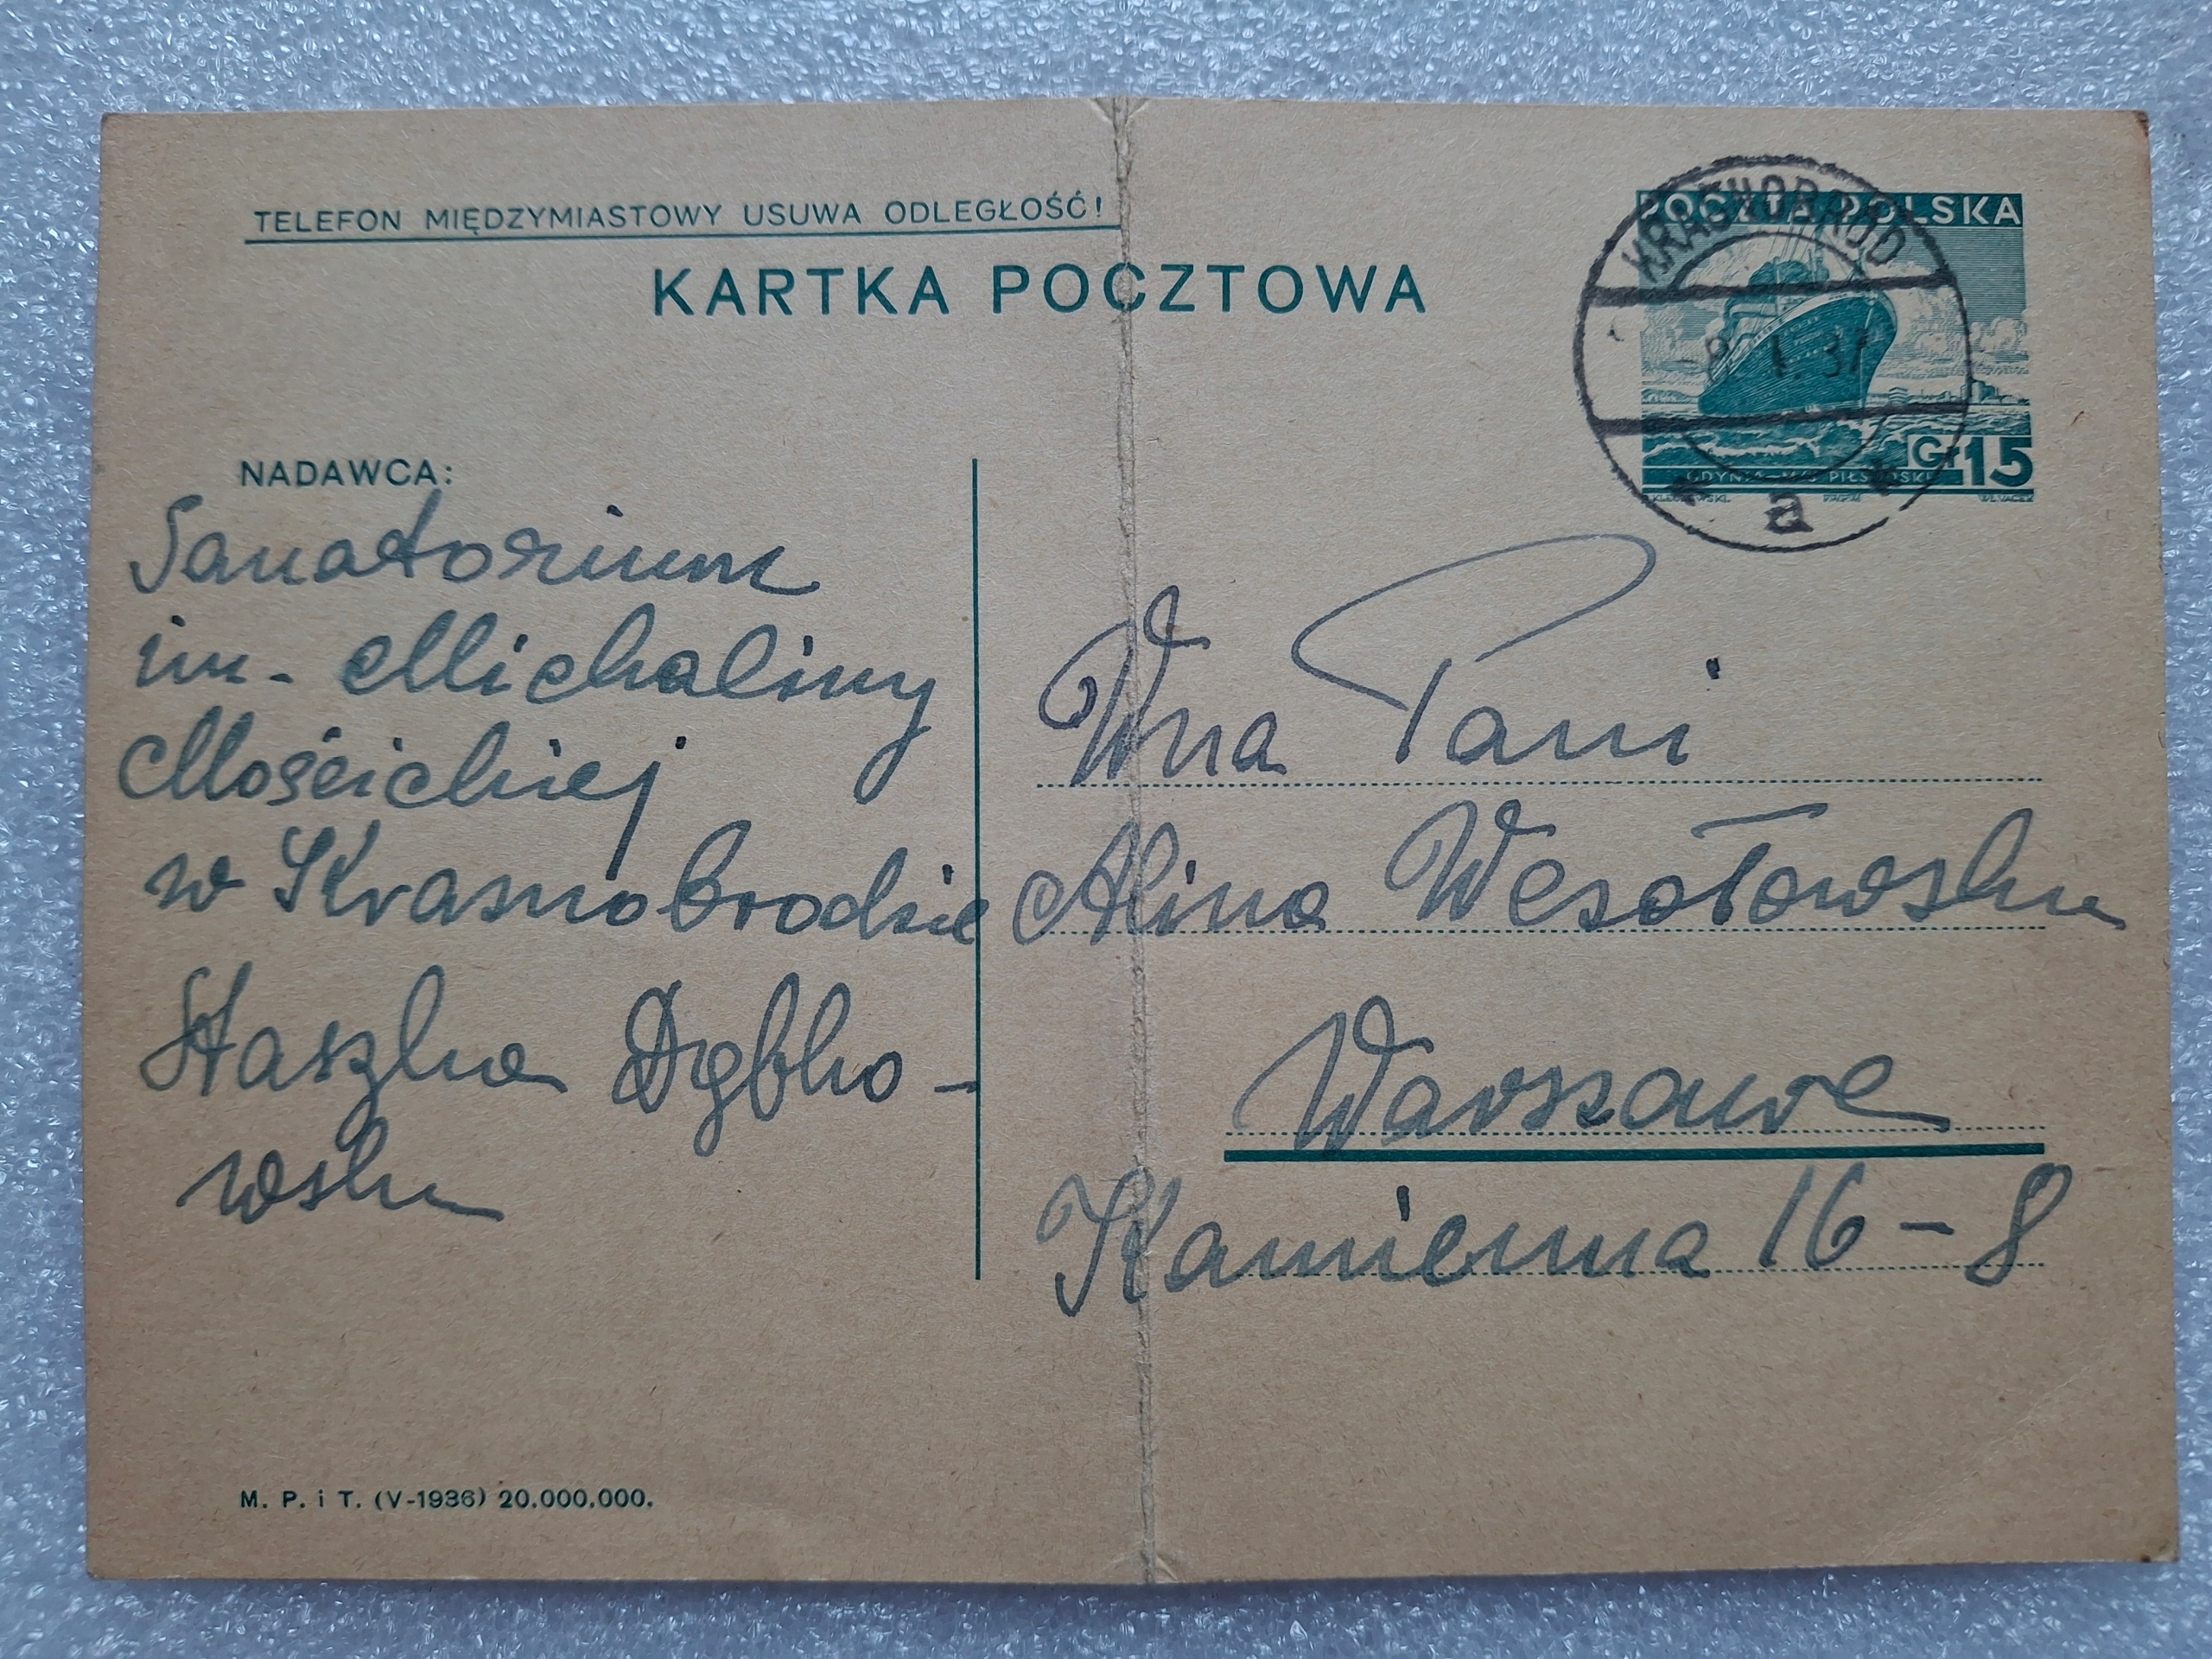 TELEFON MIĘDZYMIASTOWY USUWA ODLEGŁOŚĆ!
KARTKA POCZTOWA
POCZTA POLSKA
KRASNOBRÓD
-8. 1. 37
Gr 15
GDYNIA-M/S PIŁSUDSKI
a
NADAWCA:
Sanatorium
im. Michaliny
Mościckiej
w Krasnobrodzie
Staszka Dybko-
wska
Wna Pani
Alina Wesołowska
Warszawa
Kamienna 16-8
M. P. i T. (V-1936) 20.000.000.